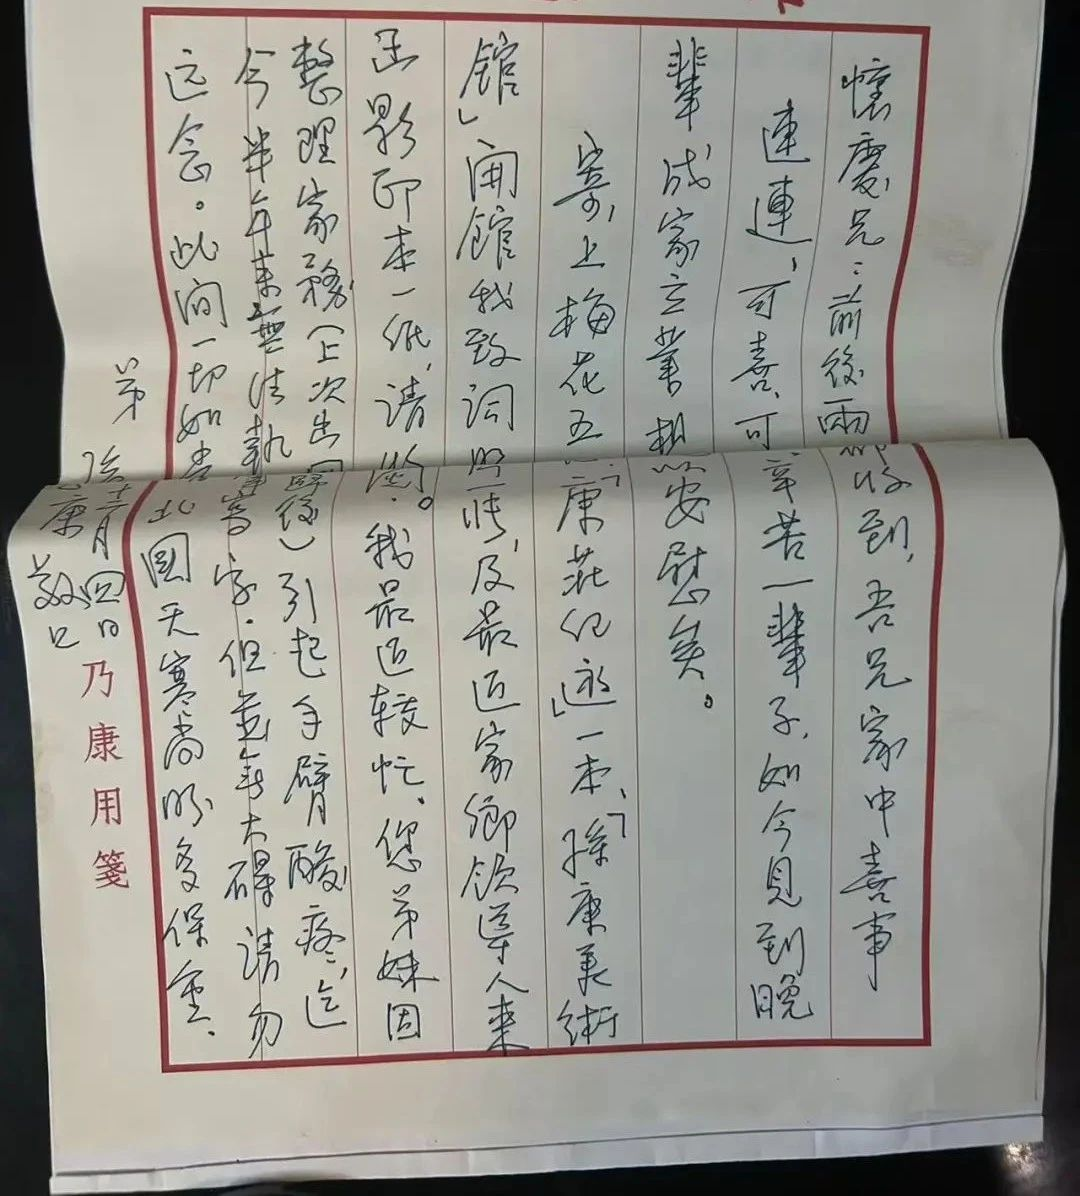 懷慶兄：前後兩收到，吾兄家中喜事
連連，可喜可辛苦一輩子，如今見到晚
輩成家立業以安慰矣。
寄上梅花五「康莊紀遊」一本，「孫康美術
館」開館我致词照及最近家鄉領導人来
函影印本一紙，请阅。我最近較忙，您弟妹因
整理家務（上次出國後）引起手臂酸疼，迄
今半年来無法執筆寫字，但並無大礙请勿
远念。此间一切如常北國天寒尚盼多保重。
弟康敬上
十二月四日
乃康用箋